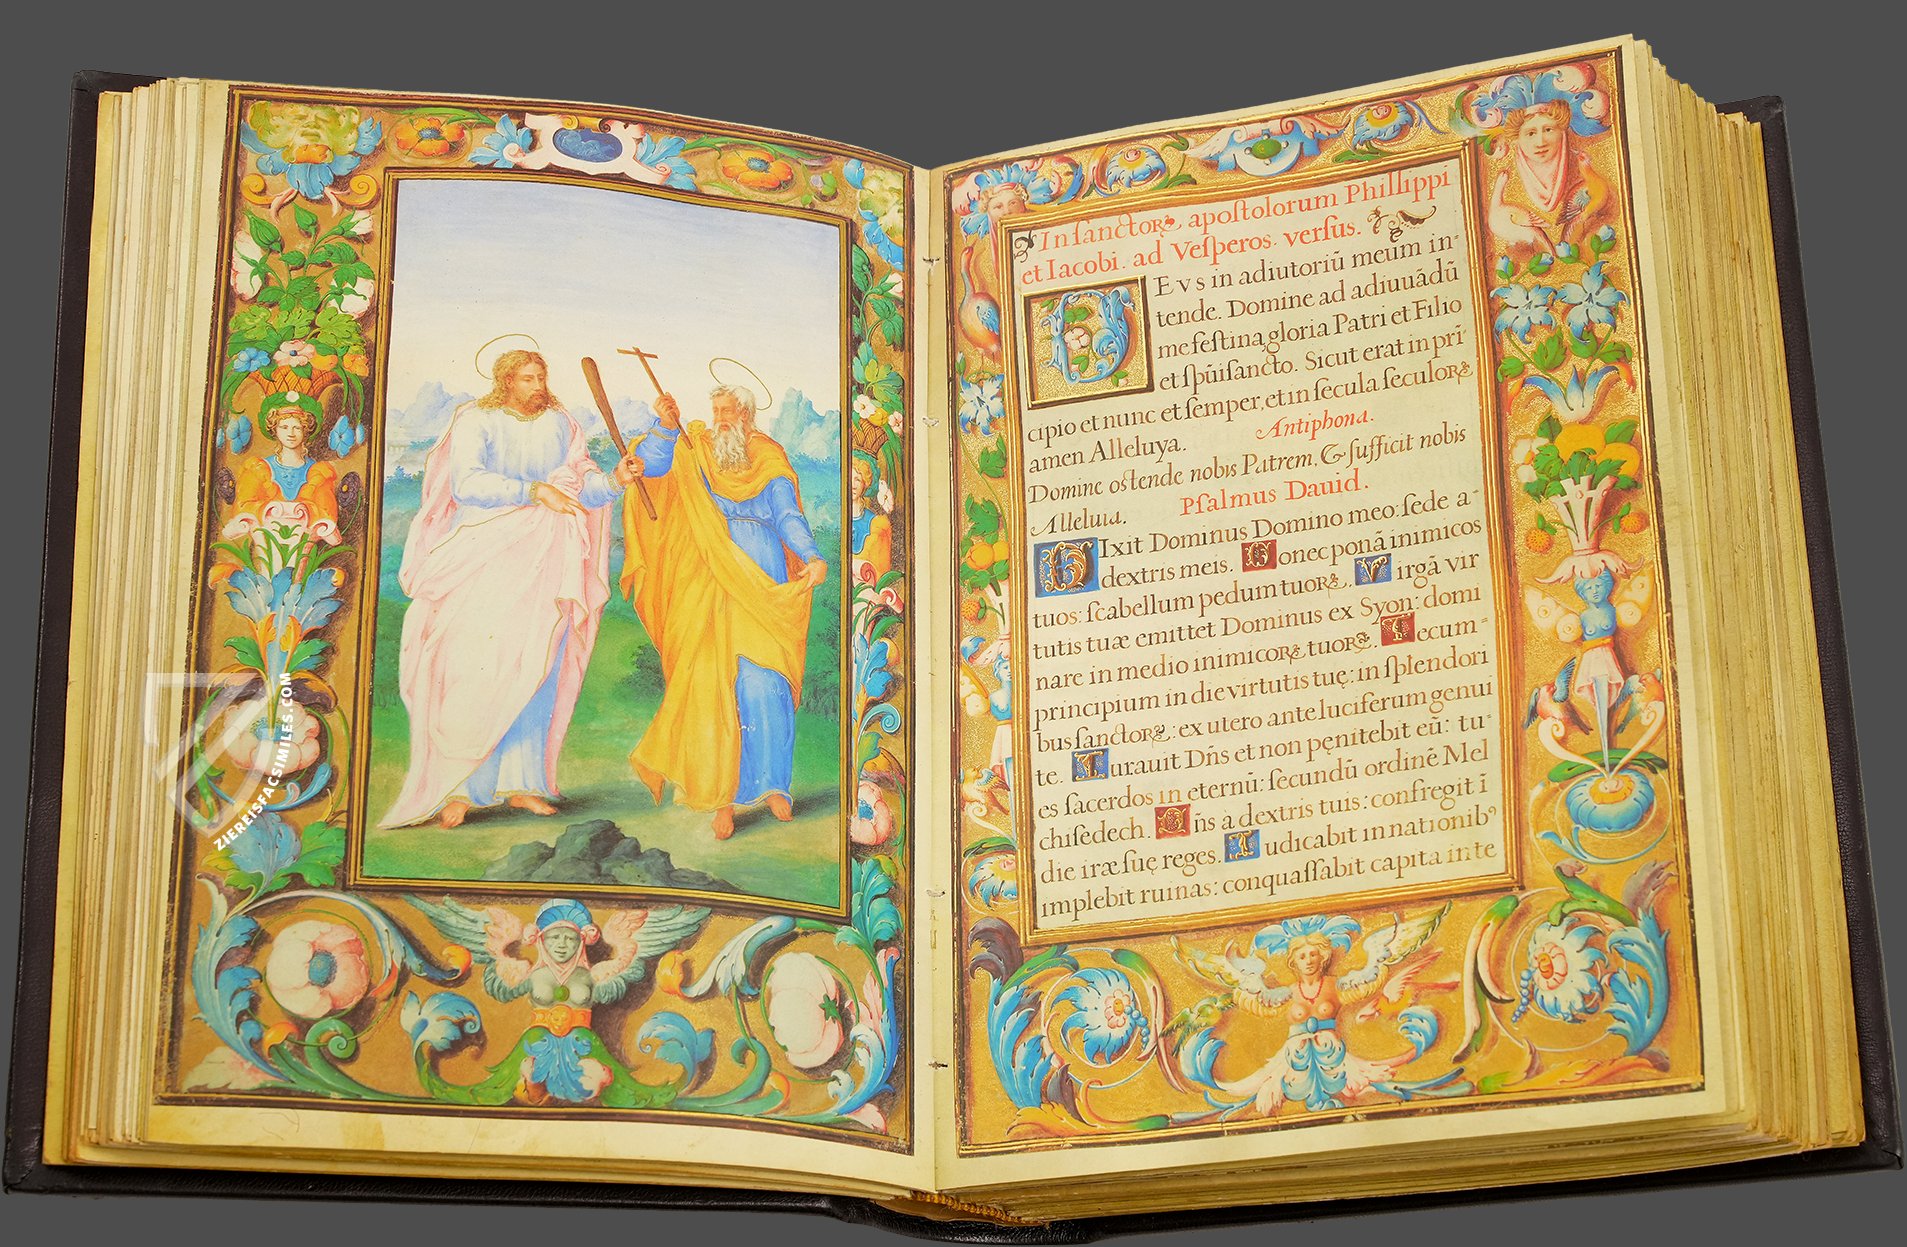 ZIEREISFACSIMILES.COM
In ſanctorꝝ apoſtolorum Phillippi
et Iacobi. ad Veſperos. verſus.
DEvs in adiutoriũ meum in-
tende. Domine ad adiuuãdũ
me feſtina, gloria Patri et Filio
et ſpũi ſancto. Sicut erat in pri
cipio et nunc et ſemper, et in ſecula ſeculorꝝ
amen Alleluya. Antiphona.
Domine ostende nobis Patrem, & ſufficit nobis
Alleluia. Pſalmus Dauid.
DIxit Dominus Domino meo: ſede a-
dextris meis. Donec ponã inimicos
tuos: ſcabellum pedum tuorꝝ. Virgã vir
tutis tuæ emittet Dominus ex Syon: domi
nare in medio inimicorꝝ tuorꝝ. Tecum-
principium in die virtutis tuę: in ſplendori
bus ſanctorꝝ: ex utero ante luciferum genui
te. Iurauit Dñs et non pęnitebit eũ: tu-
es ſacerdos in eternũ: ſecundũ ordinẽ Mel
chiſedech. Dñs a dextris tuis: confregit ĩ
die iræ ſuę reges. Iudicabit in nationibꝰ
implebit ruinas: conquaſſabit capita in te